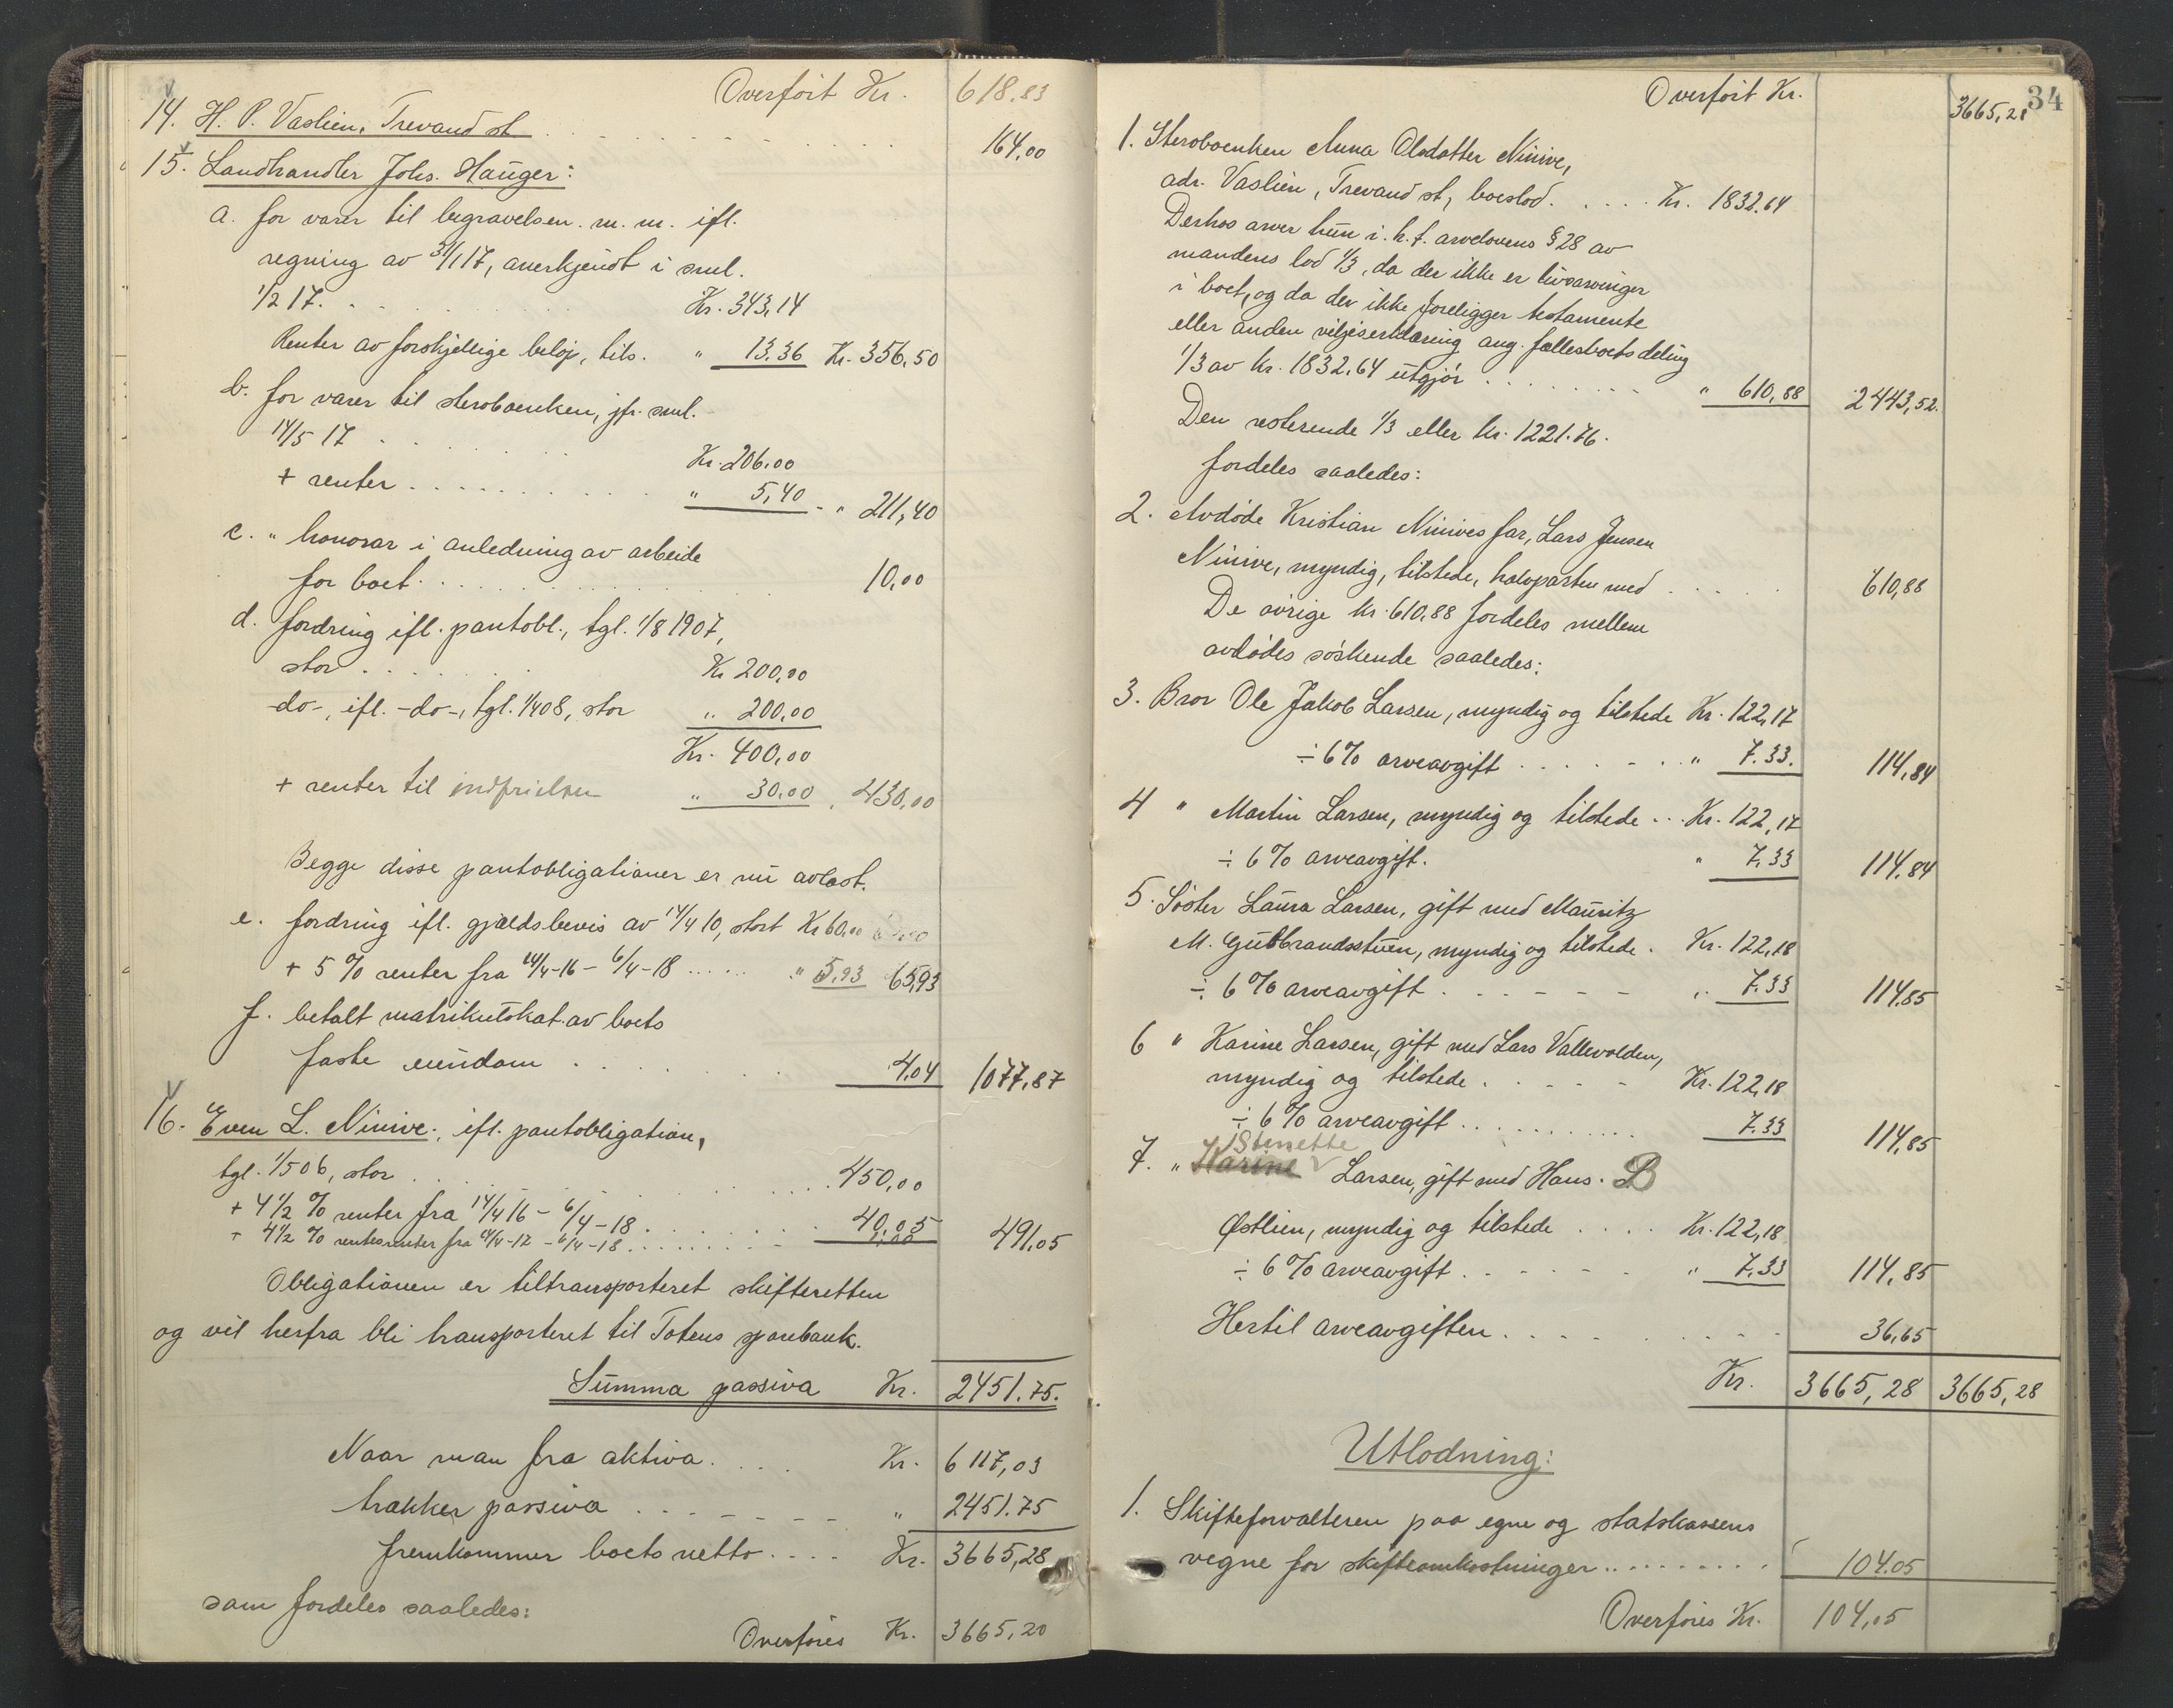 Overført Kr. 618.83
14. H. P. Vaslien, Trevand st. 164,00
15. Landhandler Johs. Hauger:
a. for varer til begravelsen m. m. ifl.
regning av 31/1 17, anerkjendt i sml.
1/2 17. Kr. 343,14
Renter av forskjellige beløp, tils. " 13.36 Kr. 356,50
b. for varer til sterboenken, jfr. sml.
14/5 17 Kr. 206,00
+ renter " 5,40 - " 211,40
c. " honorar i anledning av arbeide
for boet 10,00
d. fordring ifl. pantobl., tgl. 1/8 1907,
stor Kr 200,00
-do-, ifl. -do-, tgl. 1/4 08, stor " 200,00
Kr. 400,00
+ renter til indfrielsen " 30.00 , 430,00
Begge disse pantobligationer er nu avløst.
e. fordring ifl. gjældsbevis av 14/4 10, stort Kr 60,00
+ 5 % renter fra 14/4-16 - 6/4-18 " 5,93 65,93
f. betalt matrikulskat av boets
faste eiendom 4,04 1077,87
16. Even L. Ninive, ifl. pantobligation,
tgl. 1/5 06, stor 450,00
+ 4 1/2 % renter fra 14/4 16 - 6/4-18 40,05
+ 4 1/2 % rentesrenter fra 14/4-17 - 6/4-18 1,00 491,05
Obligationen er tiltransporteret skifteretten
og vil herfra bli transporteret til Totens sparebank.
Summa passiva Kr. 2451.75.
Naar man fra aktiva Kr. 6117,03
trækker passiva " 2451.75
fremkommer boets netto Kr. 3665,28
som fordeles saaledes:
Overføres Kr. 3665,20
34
Overført Kr. 3665,28
1. Sterboenken Anna Olsdatter Ninive,
adr. Vaslien, Trevand st, boeslod Kr. 1832.64
Derhos arver hun i h. t. arvelovens § 28 av
mandens lod 1/3, da der ikke er livsarvinger
i boet, og da der ikke foreligger testamente
eller anden viljeserklæring ang. fællesboets deling
1/3 av kr. 1832.64 utgjør " 610,88 2443,52.
Den resterende 1/3 eller kr. 1221.76.
fordeles saaledes:
2. Avdøde Kristian Ninives far, Lars Jensen
Ninive, myndig, tilstede, halvparten med 610,88
De øvrige kr. 610,88 fordeles mellem
avdødes søskende saaledes:
3. Bror Ole Jakob Larsen, myndig og tilstede Kr. 122,17
÷ 6 % arveavgift " 7.33. 114,84
4 " Martin Larsen, myndig og tilstede Kr. 122,17
÷ 6 % arveavgift. " 7.33 114.84
5. Søster Laura Larsen, gift med Mauritz
M. Gulbrandsstuen, myndig og tilstede. Kr. 122,18
÷ 6 % arveavgift " 7.33 114.85
6 " Karine Larsen, gift med Lars Vallevolden,
myndig og tilstede Kr. 122,18
÷ 6 % arveavgift 7.33 114,85
Stinette
7. " Karine Larsen, gift med Hans. B
Østlien, myndig og tilstede Kr. 122,18
÷ 6 % arveavgift " 7.33 114,85
Hertil arveavgiften 36,65
Kr. 3665,28 3665,28
Utlodning:
1. Skifteforvalteren paa egne og statskassens
vegne for skifteomkostninger 104.05
Overføres Kr. 104,05